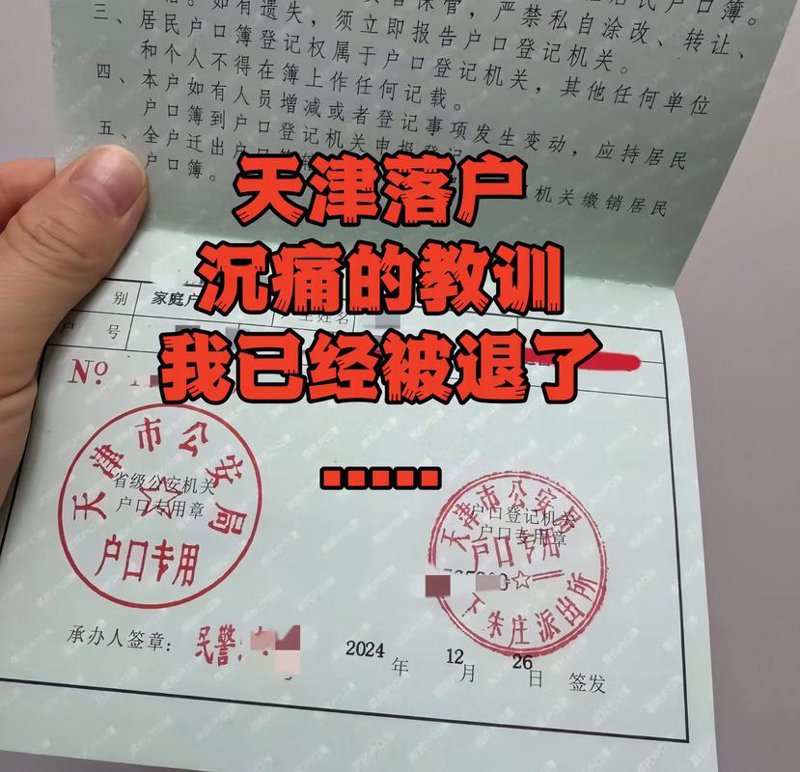 如有遗失，须立即报告户口登记机关。
三、居民户口簿登记权属于户口登记机关，其他任何单位
和个人不得在簿上作任何记载。
四、本户如有人员增减或者登记事项发生变动，应持居民
户口簿到户口登记机关申报登
五、全户迁出户口
机关缴销居民
户口簿。
天津落户
沉痛的教训
我已经被退了
......
别 家庭户
户主姓名
户号
No
天津市公安局
省级公安机关
户口专用章
户口专用
天津市公安局
户口登记机关
户口专用章
户口专用
朱庄派出所
承办人签章：
民警：
2024 年 12 月 26 日 签发